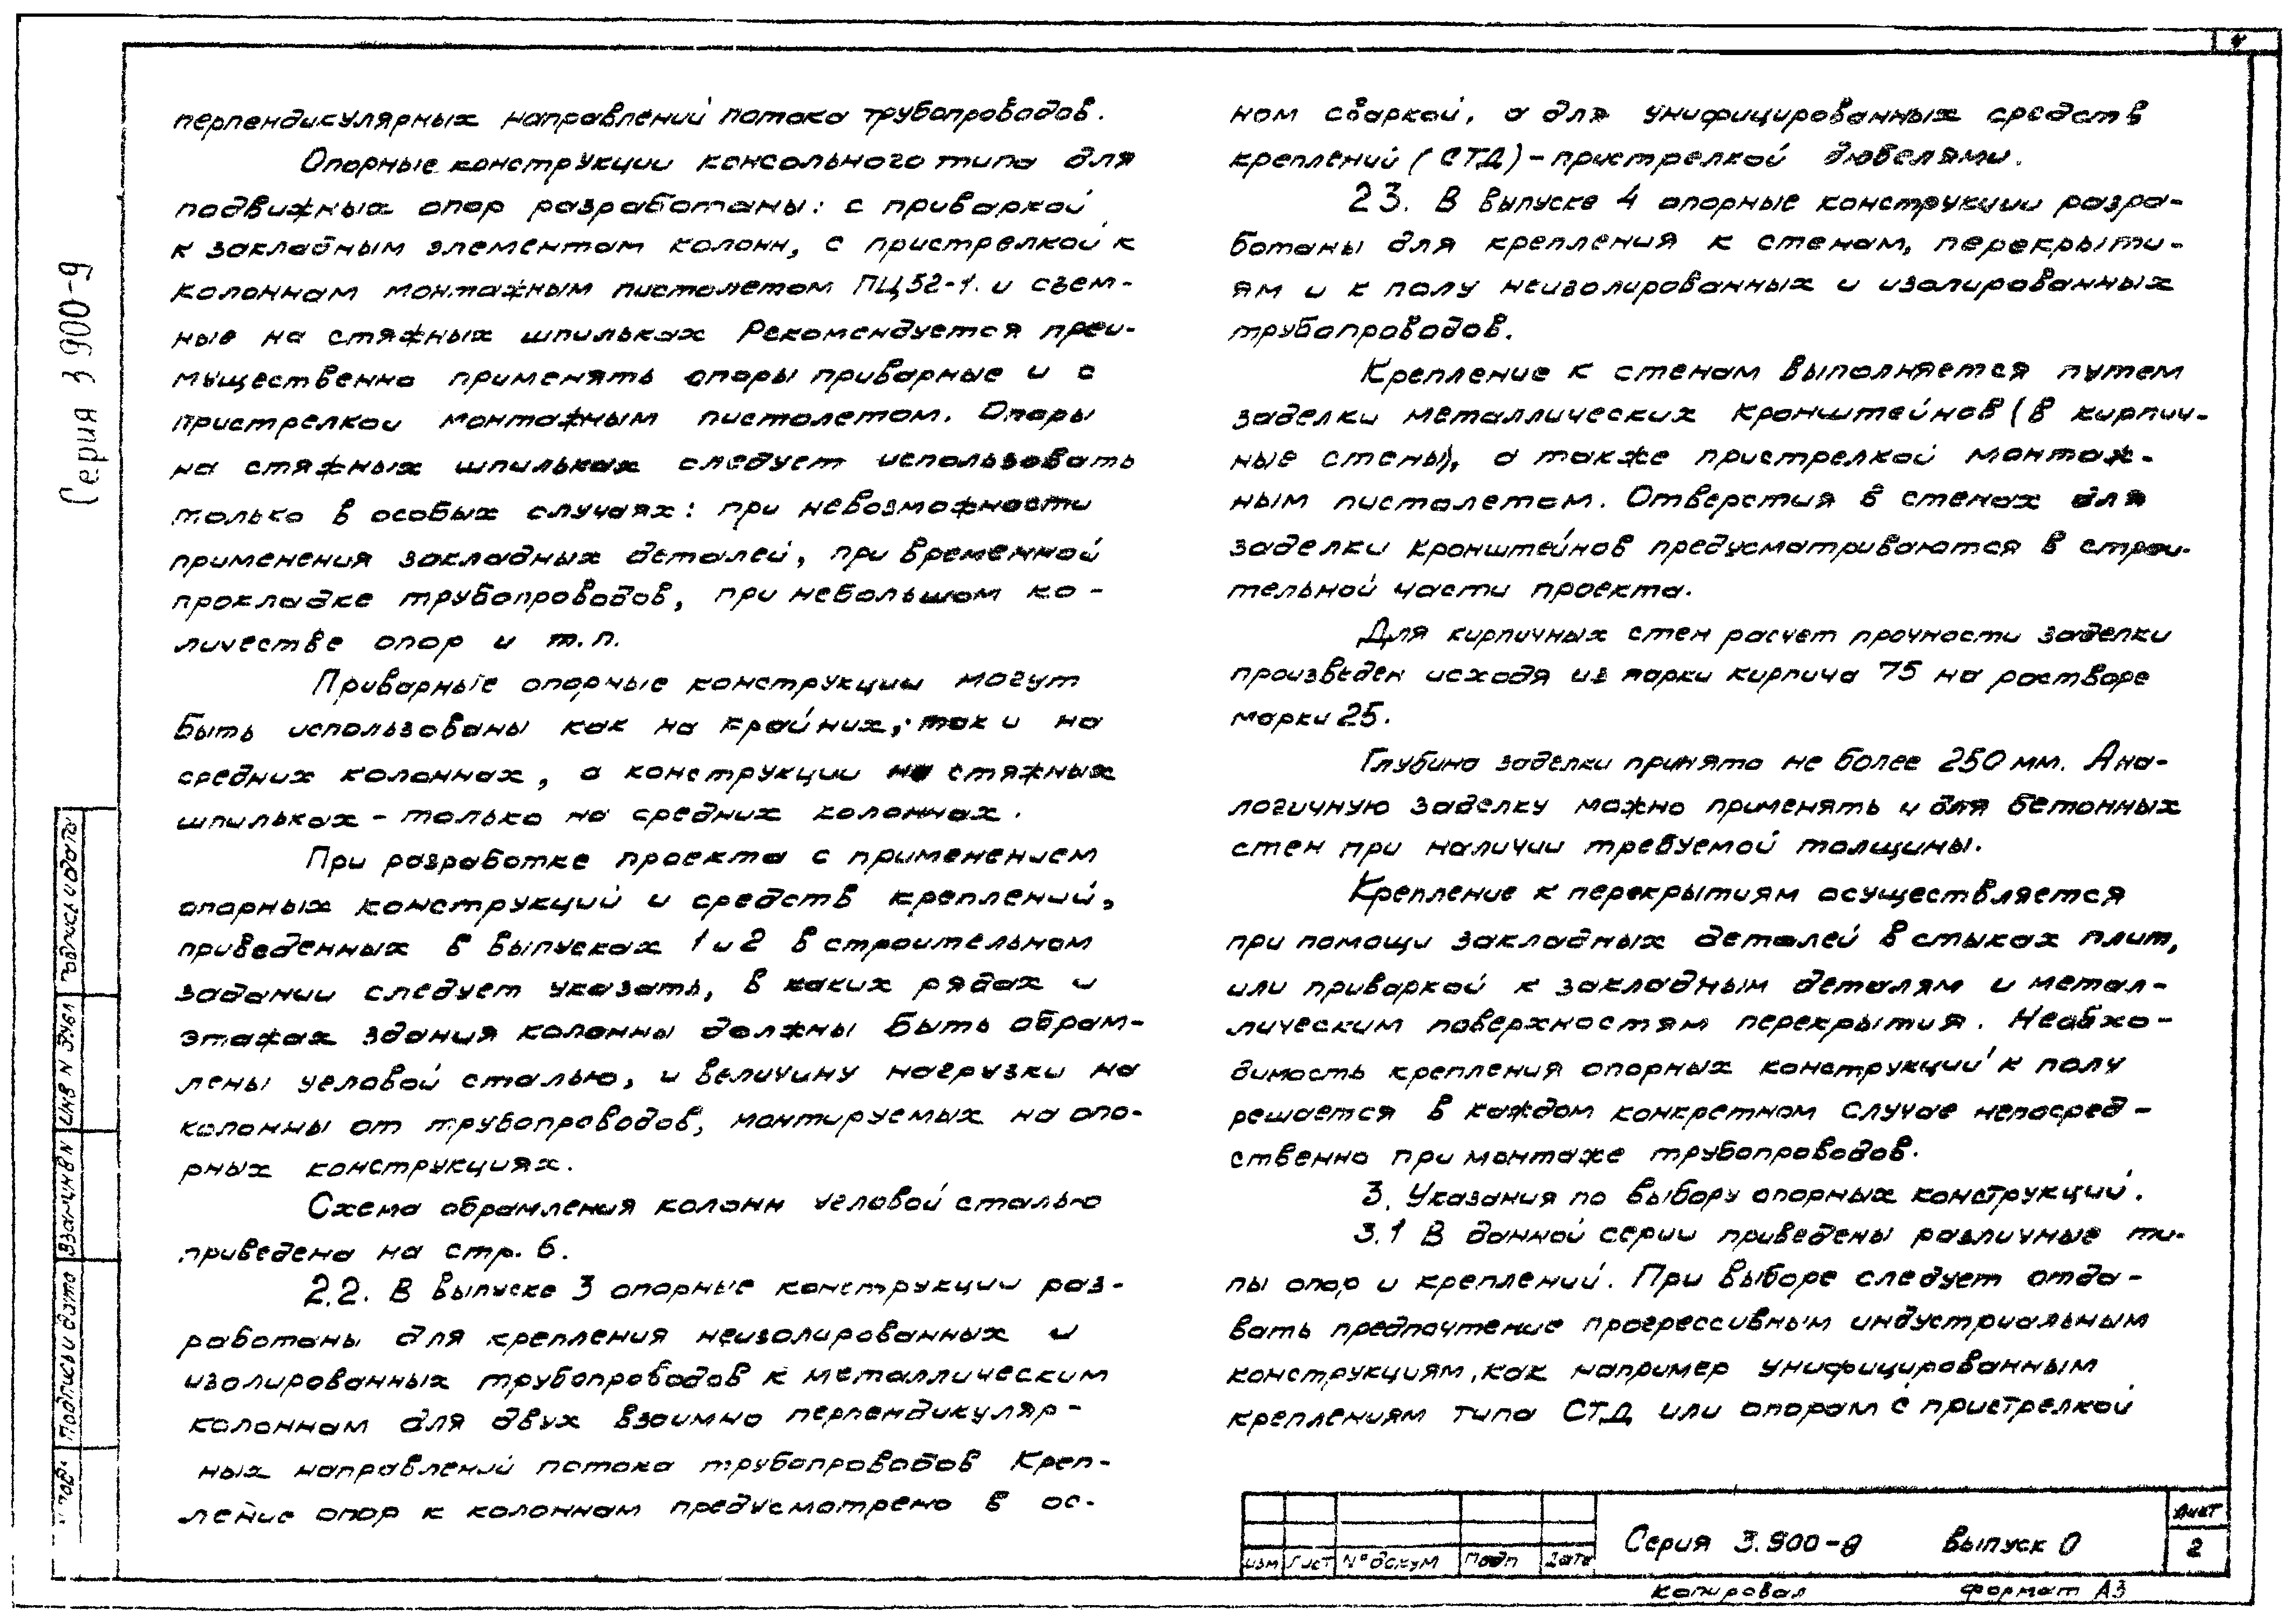 4
перпендикулярных направлений потока трубопроводов.
Опорные конструкции консольного типа для
подвижных опор разработаны: с приваркой
к закладным элементам колонн, с пристрелкой к
колоннам монтажным пистолетом ПЦ52-1. и съем-
ные на стяжных шпильках Рекомендуется преи-
мущественно применять опоры приварные и с
пристрелкой монтажным пистолетом. Опоры
на стяжных шпильках следует использовать
только в особых случаях: при невозможности
применения закладных деталей, при временной
прокладке трубопроводов, при небольшом ко-
личестве опор и т.п.
Приварные опорные конструкции могут
быть использованы как на крайних, так и на
средних колоннах, а конструкции на стяжных
шпильках - только на средних колоннах.
При разработке проекта с применением
опорных конструкций и средств креплений,
приведенных в выпусках 1 и 2 в строительном
задании следует указать, в каких рядах и
этажах здания колонны должны быть обрам-
лены угловой сталью, и величину нагрузки на
колонны от трубопроводов, монтируемых на опо-
рных конструкциях.
Схема обрамления колонн угловой сталью
приведена на стр. 6.
2.2. В выпуске 3 опорные конструкции раз-
работаны для крепления неизолированных и
изолированных трубопроводов к металлическим
колоннам для двух взаимно перпендикуляр-
ных направлений потока трубопроводов Креп-
ление опор к колоннам предусмотрено в ос-
ном сваркой, а для унифицированных средств
креплений (СТД) - пристрелкой дюбелями.
23. В выпуске 4 опорные конструкции разра-
ботаны для крепления к стенам, перекрыти-
ям и к полу неизолированных и изолированных
трубопроводов.
Крепление к стенам выполняется путем
заделки металлических кронштейнов (в кирпич-
ные стены), а также пристрелкой монтаж-
ным пистолетом. Отверстия в стенах для
заделки кронштейнов предусматриваются в строи-
тельной части проекта.
Для кирпичных стен расчет прочности заделки
произведен исходя из марки кирпича 75 на растворе
марки 25.
Глубина заделки принята не более 250 мм. Ана-
логичную заделку можно применять и для бетонных
стен при наличии требуемой толщины.
Крепление к перекрытиям осуществляется
при помощи закладных деталей в стыках плит,
или приваркой к закладным деталям и метал-
лическим поверхностям перекрытия. Необхо-
димость крепления опорных конструкций к полу
решается в каждом конкретном случае непосред-
ственно при монтаже трубопроводов.
3. Указания по выбору опорных конструкций.
3.1 В данной серии приведены различные ти-
пы опор и креплений. При выборе следует отда-
вать предпочтение прогрессивным индустриальным
конструкциям, как например унифицированным
креплениям типа СТД или опорам с пристрелкой
Серия 3 900-9
Подпись и дата
Инв N дубл
Взам инв N
Подпись и дата
подп
Изм Лист N° докум Подп Дата
Серия 3.900-9 Выпуск 0
Лист
2
Копировал формат А3